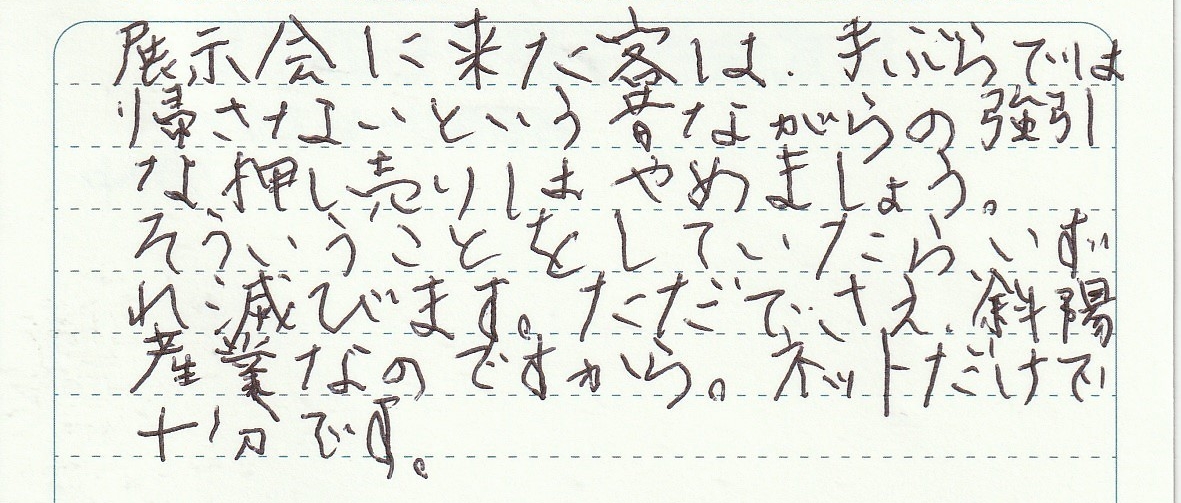 展示会に来た客は、手ぶらでは
帰さないという昔ながらの強引
な押し売りはやめましょう。
そういうことをしていたらいず
れ滅びます。ただでさえ、斜陽
産業なのですから。ネットだけで
十分です。